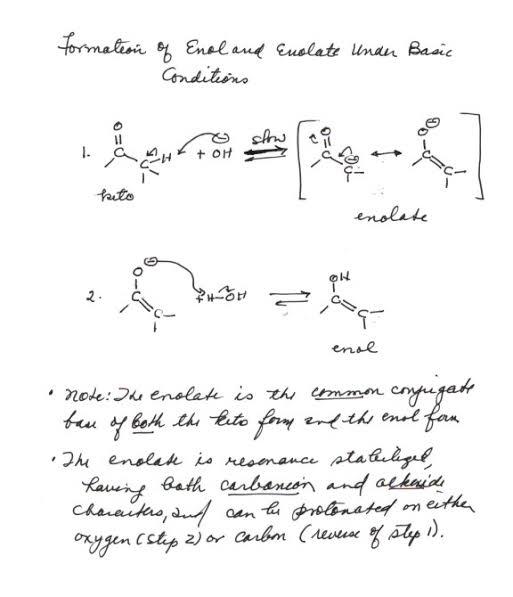 Formation of Enol and Enolate Under Basic
Conditions
1. O C C H + OH ⊖ slow O C C ⊖ ↔ O ⊖ C C
keto
enolate
2. O ⊖ C C + H-OH ⇌ OH C C
enol
• Note: The enolate is the common conjugate
base of both the keto form and the enol form
• The enolate is resonance stabilized,
having both carbanion and alkoxide
characters, and can be protonated on either
oxygen (step 2) or carbon (reverse of step 1).